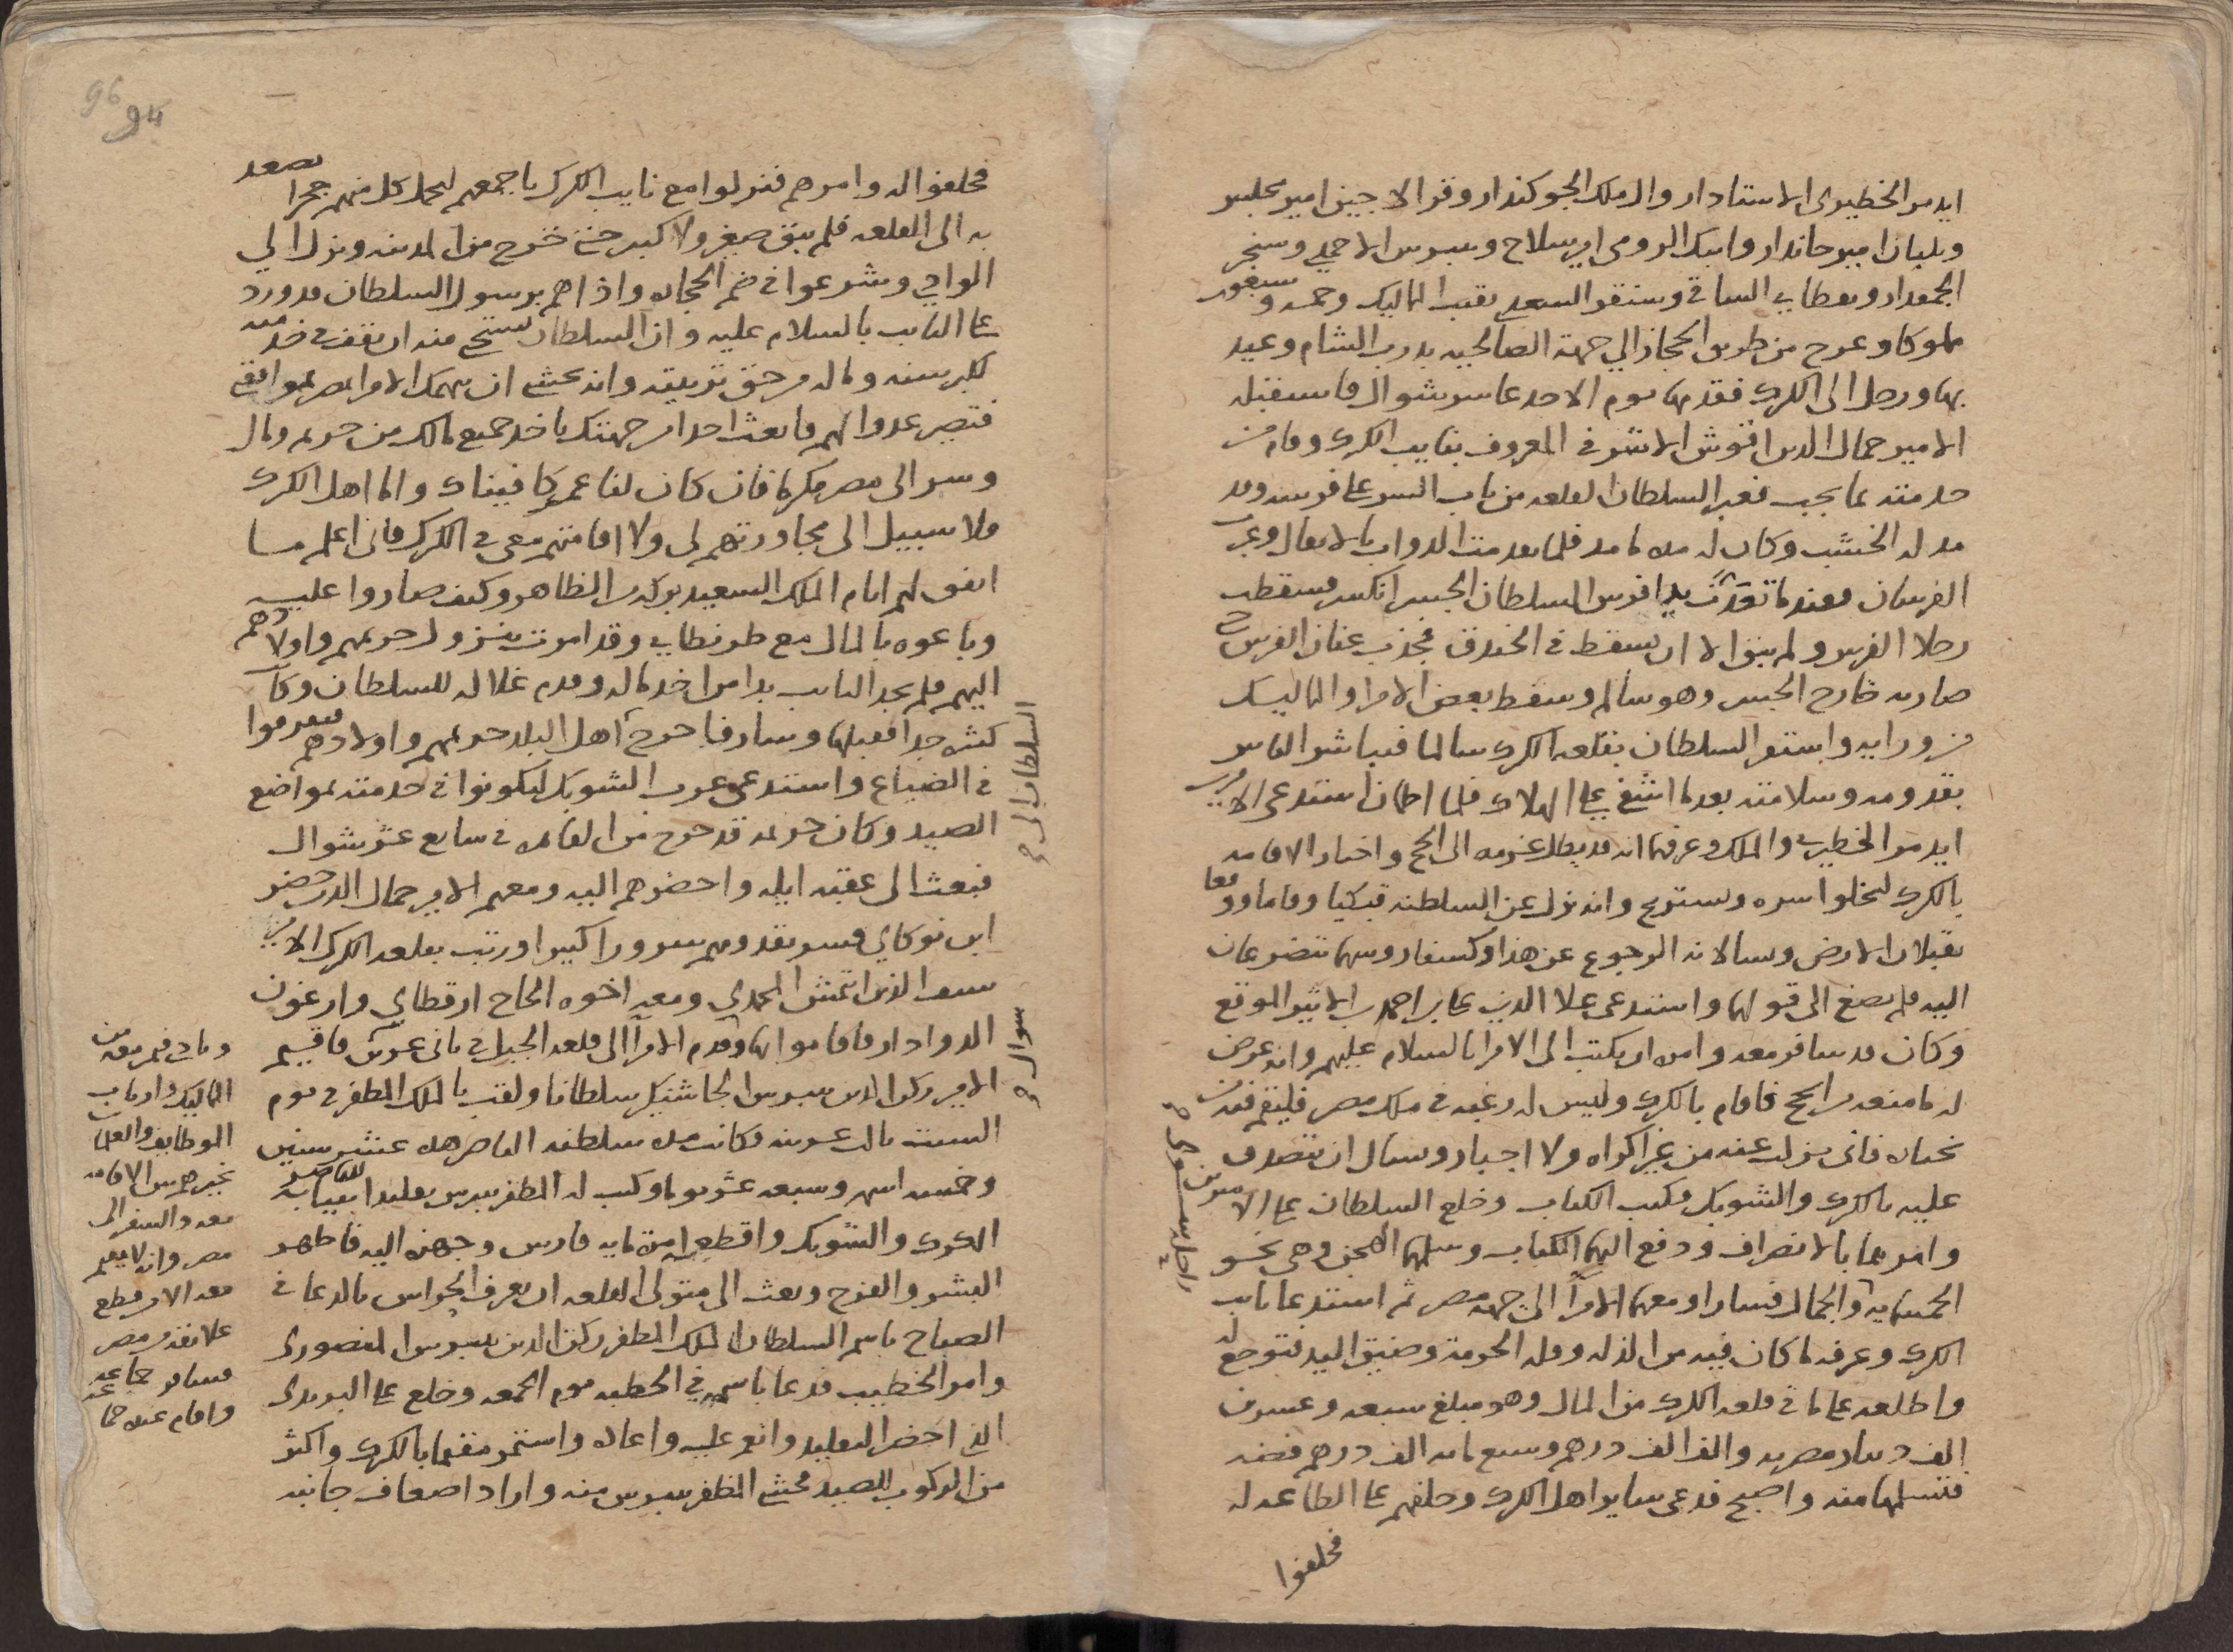 ايدمر الخطيرى الاستادار وال ملك الجوكندار وقرالاجين امير مجلس
وبلبان امير جاندار وايبك الرومى امير سلاح وبيبرس الاحمدي وسنجر
الجمقدار وبقطاي الساقي وسنقر السعدي نقيب المماليك وخمسه وسبعون
مملوكا وعرج من طريق الحجاز الي جهة الصالحيه بدرب الشام وعيد
بها ورحل الى الكرك فقدمها يوم الاحد عاشر شوال فاستقبله
الامير جمال الدين اقوش الاشرفي المعروف بنايب الكرك وقام في
خدمته بما يجب فعبر السلطان القلعه من باب السر على فرسه وقد
مد له الخشب وكان له مده ما مد فلما تقدمت الدواب بالاثقال وعبرت
الفرسان فعندما تقدمت يدا فرس السلطان الجسر انكسر فسقطت
رجلا الفرس ولم يبق الا ان يسقط في الخندق فجذب عنان الفرس حتى
صار به خارج الجسر وهو سالم وسقط بعض الامرا والمماليك
من ورايه واستقر السلطان بقلعة الكرك سالما فتباشر الناس
بقدومه وسلامته بعدما اشفى على الهلاك فلما اطمان استدعى الاميرين
ايدمر الخطيري وال ملك وعرفهما انه قد بطل عزمه الى الحج واختار الاقامه
بالكرك ليخلوا سره ويستريح وانه نزل عن السلطنه فبكيا وقاما ووقفا
يقبلان الارض وسالاه الرجوع عن هذا وكشفا روسهما يتضرعان
اليه فلم يصغ الى قولهما واستدعى علا الدين علي بن احمد بن الاثير الموقع
وكان قد سافر معه وامره ان يكتب الى الامرا بالسلام عليهم وانه عرض
له ما منعه من الحج فاقام بالكرك وليس له رغبه في ملك مصر فليقم فيه من
تختاره فانى نزلت عنه من غير اكراه ولا اجبار وسال ان يتصدق
عليه بالكرك والشوبك فكتب الكتاب وخلع السلطان على الاميرين
وامرهما بالانصراف ودفع اليهما الكتاب وسلمهما الهجن وهى نحو
الخمسمايه والجمال فسارا ومعهما الامرا الى جهة مصر ثم استدعا نايب
الكرك وعرفه ما كان فيه من الذله وقله الحرمة وضيق اليد فتوجع له
واطلعه على ما في قلعه الكرك من المال وهو مبلغ سبعه وعشرين
الف دينار مصريه والف الف درهم وسبع مايه الف درهم فضه
فتسلمها منه واصبح فدعى ساير اهل الكرك وحلفهم على الطاعه له
فحلفوا
راحلين سوى
96
94
فحلفوا له وامرهم فنزلوا مع نايب الكرك باجمعهم ليحمل كل منهم حجرا يصعد
به الى القلعه فلم يبق صغير ولا كبير حتى خرج من المدينه ونزل الي
الوادي وشرعوا في ضم الحجاره واذا هم برسول السلطان قد ورد
على النايب بالسلام عليه وان السلطان يستحي منه ان يقف في خدمته
لكبر سنه وما له من حق تربيته وانه يخشى ان يمسك الامرا بمصر لموافقه
فتصير عدوا لهم فابعث احدا من جهتك ياخذ جميع مالك من حريم ومال
وسر الى مصر مكرما فان كان لنا عمر كافيناك واما اهل الكرك
فلا سبيل الى مجاورتهم لى ولا اقامتهم معى في الكرك فانى اعلم ما
اتفق لهم ايام الملك السعيد بركه بن الظاهر وكيف صاروا عليه
وباعوه بالمال مع طرنطاي وقد امرت بنزول حريمهم واولادهم
اليهم فلم يجد النايب بدا من اخذ ماله وقدم غلاله للسلطان وكانت
كثيره جدا فقبلها وسار فاخرج اهل البلد حريمهم واولادهم فتفرقوا
في الضياع واستدعى عرب الشوبك ليكونوا في خدمته بمواضع
الصيد وكان حريمه قد خرج من القاهره في سابع عشر شوال
فبعث الى عقبة ايله واحضرهم اليه ومعهم الامير جمال الدين خضر
ابن نوكاي فسر بقدومهم سرورا كبيرا ورتب بقلعه الكرك الامير
سيف الدين ايتمش المحمدي ومعه اخوه الحاج ارقطاي وارغون
الدوادار فاقاموا بها وقدم الامرا الى قلعه الجبل في ثانى عشرين فاقيم
الامير ركن الدين بيبرس الجاشنكير سلطانا ولقب بالملك المظفر في يوم
السبت ثالث عشرينه وكانت مده سلطنه الناصر هذه عشر سنين
وخمسه اشهر وسبعه عشر يوما وكتب له المظفر بيبرس تقليدا بنيابه للناصر
الكرك والشوبك واقطعه امرة مايه فارس وجهزه اليه فاظهر
البشر والفرح وبعث الى متولى القلعه ان يعرف الحراس بالدعا في
الصباح باسم السلطان الملك المظفر ركن الدين بيبرس المنصورى
وامر الخطيب فدعا باسمه في الخطبه يوم الجمعه وخلع على البريدى
الذي احضر التقليد وانعم عليه واعاده واستمر مقيما بالكرك واكثر
من الركوب للصيد فخشى المظفر بيبرس منه واراد اضعاف جانبه
السلطان الى
شوال
ونادى فيمن معه من
المماليك وارباب
الوظايف والغلمان
بخيرهم بين الاقامه
معه والسفر الى
مصر وانه لا يقيم
معه الا من قطع
علايقه من مصر
فسافر جماعه
واقام عنده جماعه